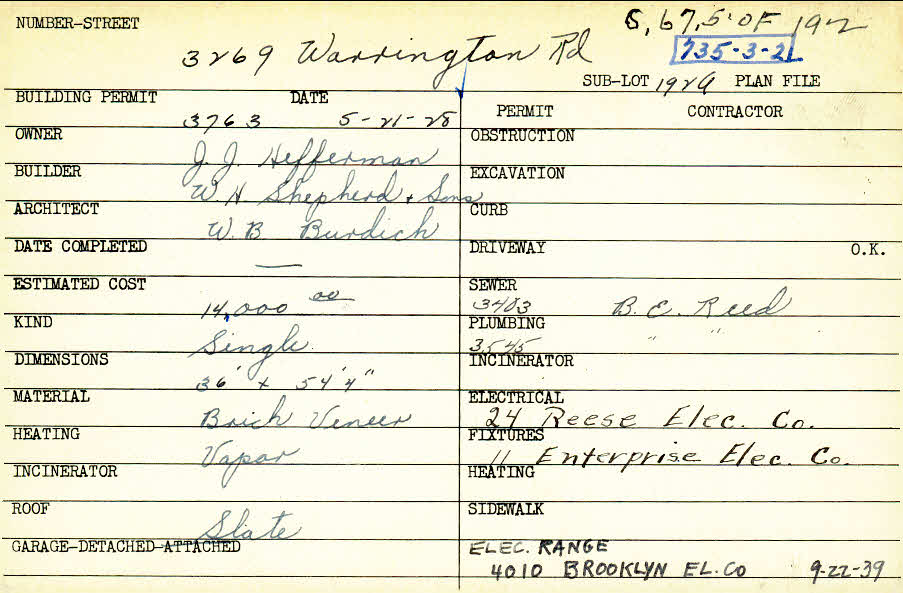 NUMBER-STREET S, 67,5' OF 192
3269 Warrington Rd 735-3-21
SUB-LOT 192A PLAN FILE
BUILDING PERMIT DATE PERMIT CONTRACTOR
3763 5-21-28
OWNER OBSTRUCTION
J. J. Hefferman
BUILDER EXCAVATION
W. H. Shepherd + Sons
ARCHITECT CURB
W. B Burdich
DATE COMPLETED DRIVEWAY O.K.
—
ESTIMATED COST SEWER
14,000 00 3403 B. E. Reed
KIND PLUMBING
Single 3545 " "
DIMENSIONS INCINERATOR
36' x 54'4"
MATERIAL ELECTRICAL
Brick Veneer 24 Reese Elec. Co.
HEATING FIXTURES
Vapor 11 Enterprise Elec. Co.
INCINERATOR HEATING
ROOF SIDEWALK
Slate
GARAGE-DETACHED-ATTACHED ELEC. RANGE
4010 BROOKLYN EL. CO 9-22-39